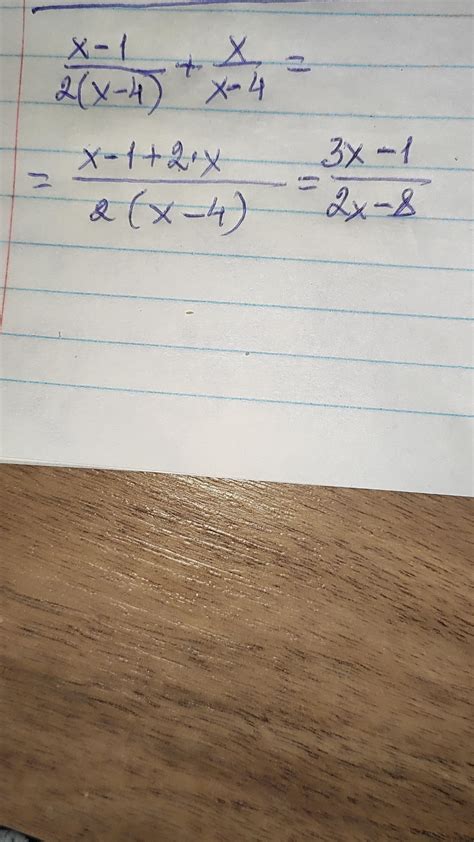 (x-1)/(2(x-4)) + x/(x-4) =
= (x-1+2·x)/(2(x-4)) = (3x-1)/(2x-8)